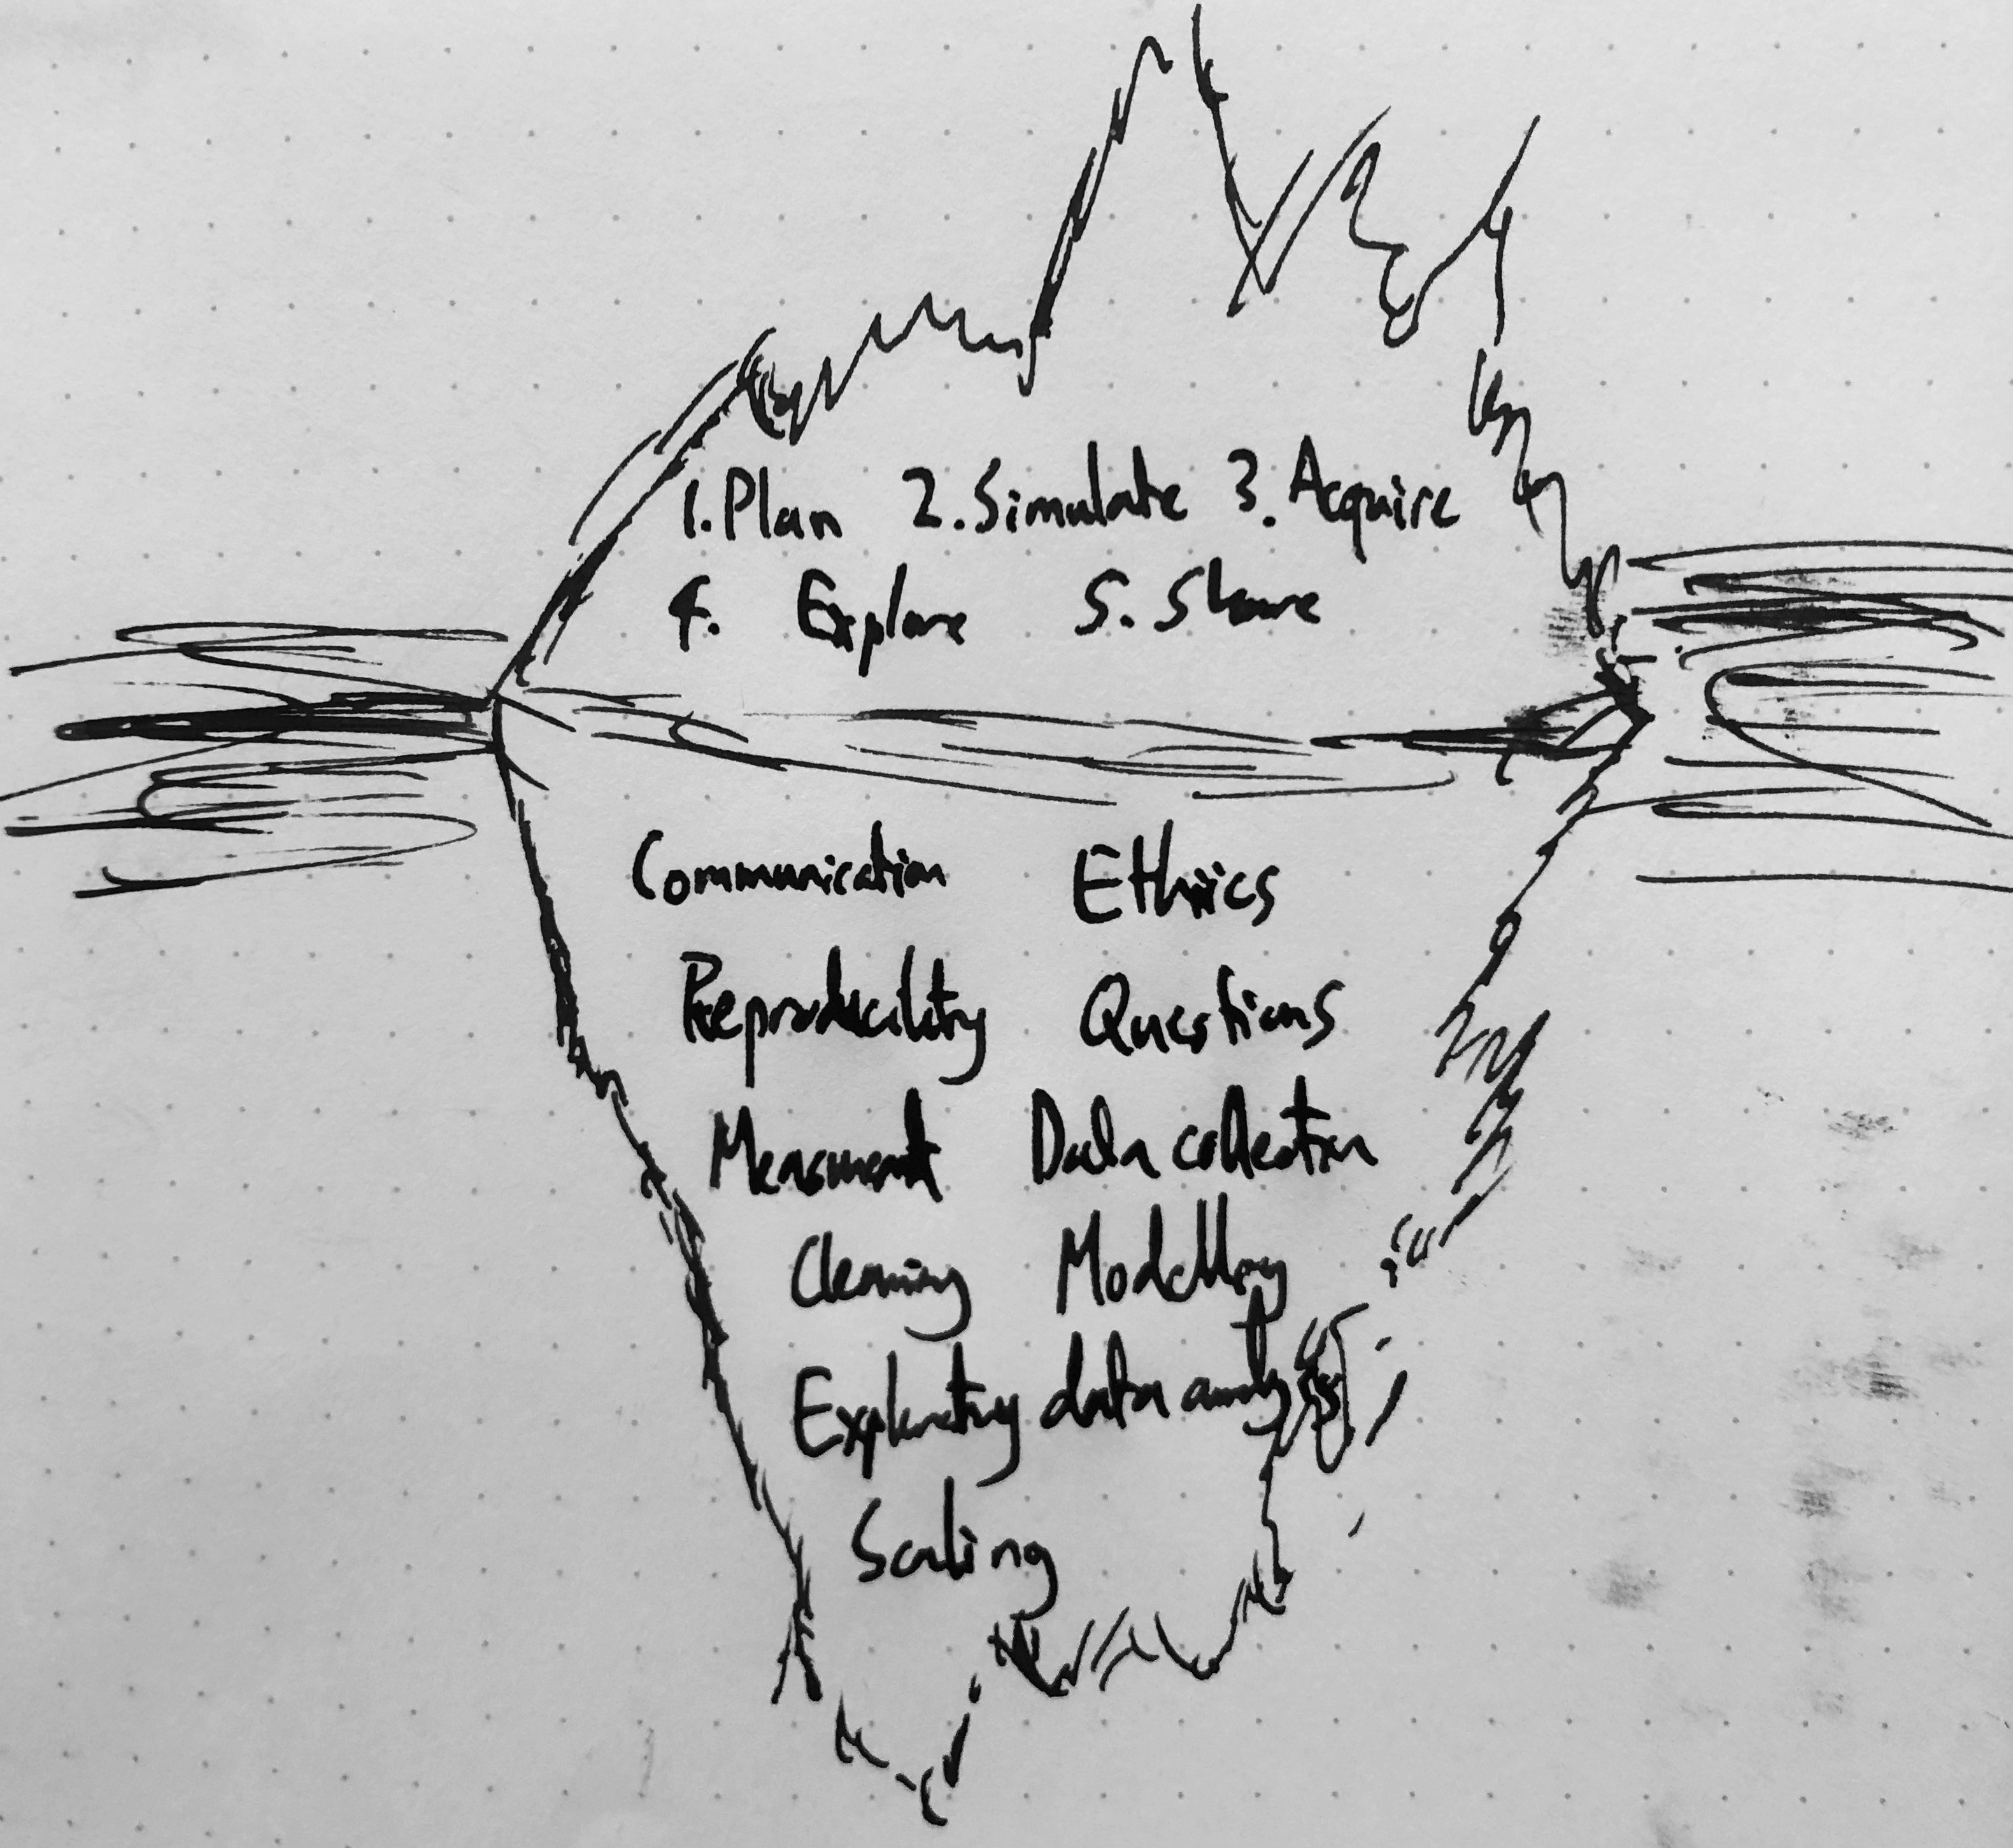 1. Plan 2. Simulate 3. Acquire
4. Explore 5. Share
Communication Ethics
Reproducibility Questions
Measurement Data collection
Cleaning Modelling
Exploratory data analysis
Scaling